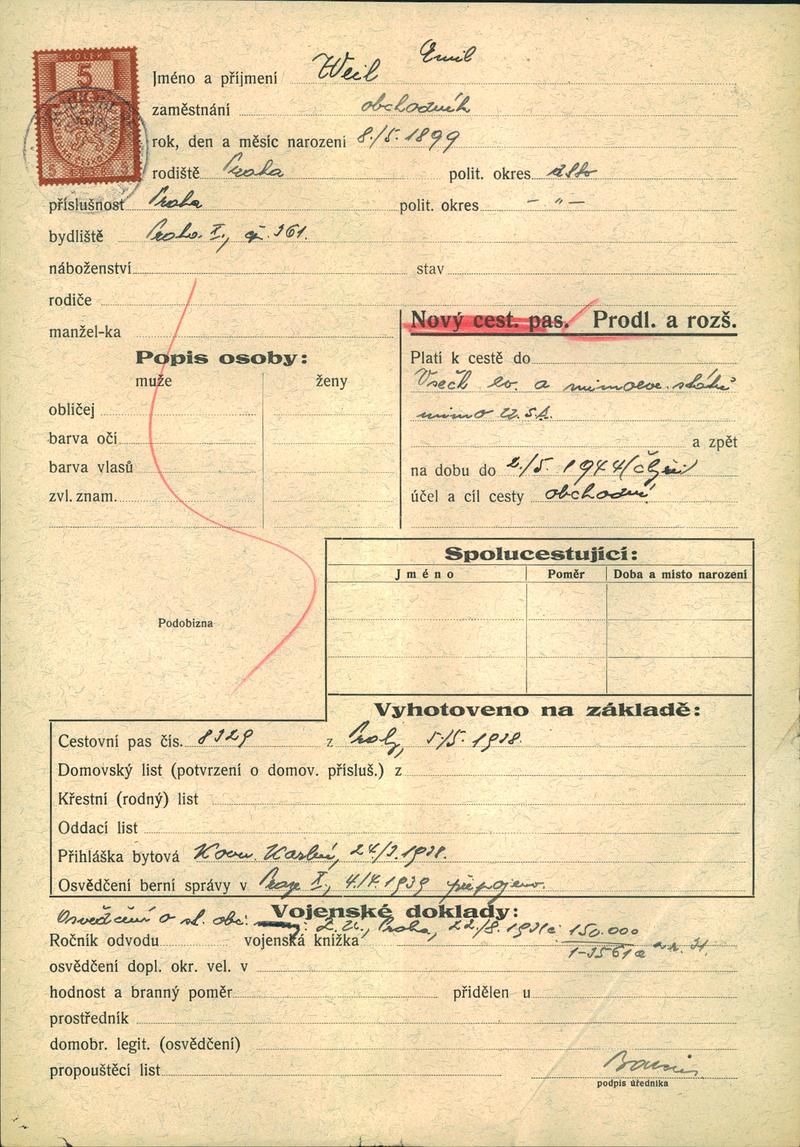 KOLEK
5
Jméno a příjmení Weil Emil
zaměstnání obchodník
rok, den a měsíc narození 8./5. 1899
rodiště Praha polit. okres
příslušnost Praha polit. okres — " —
bydliště Praha I., čp. 361.
náboženství stav
rodiče
manžel-ka
Nový cest. pas. Prodl. a rozš.
Popis osoby:
muže ženy
obličej
barva očí
barva vlasů
zvl. znam.
Platí k cestě do
Všech ev. a mimoev. států
mimo U.S.A.
a zpět
na dobu do 2./5. 1944
účel a cíl cesty obchodní
Spolucestující:
Jméno Poměr Doba a místo narození
Podobizna
Vyhotoveno na základě:
Cestovní pas čís. 8329 z Prahy, 5/5. 1938.
Domovský list (potvrzení o domov. přísluš.) z
Křestní (rodný) list
Oddací list
Přihláška bytová Kom. Karlín, 24/3. 1938.
Osvědčení berní správy v Praze I., 4./4. 1939 připojeno.
Vojenské doklady:
Osvědčení o st. obč. Z. ú., Praha, 22./8. 1931 č. 150.000
Ročník odvodu vojenská kniž̌ka
1-3561 a r. 31.
osvědčení dopl. okr. vel. v
hodnost a branný poměr přidělen u
prostředník
domobr. legit. (osvědčení)
propouštěcí list
podpis úředníka